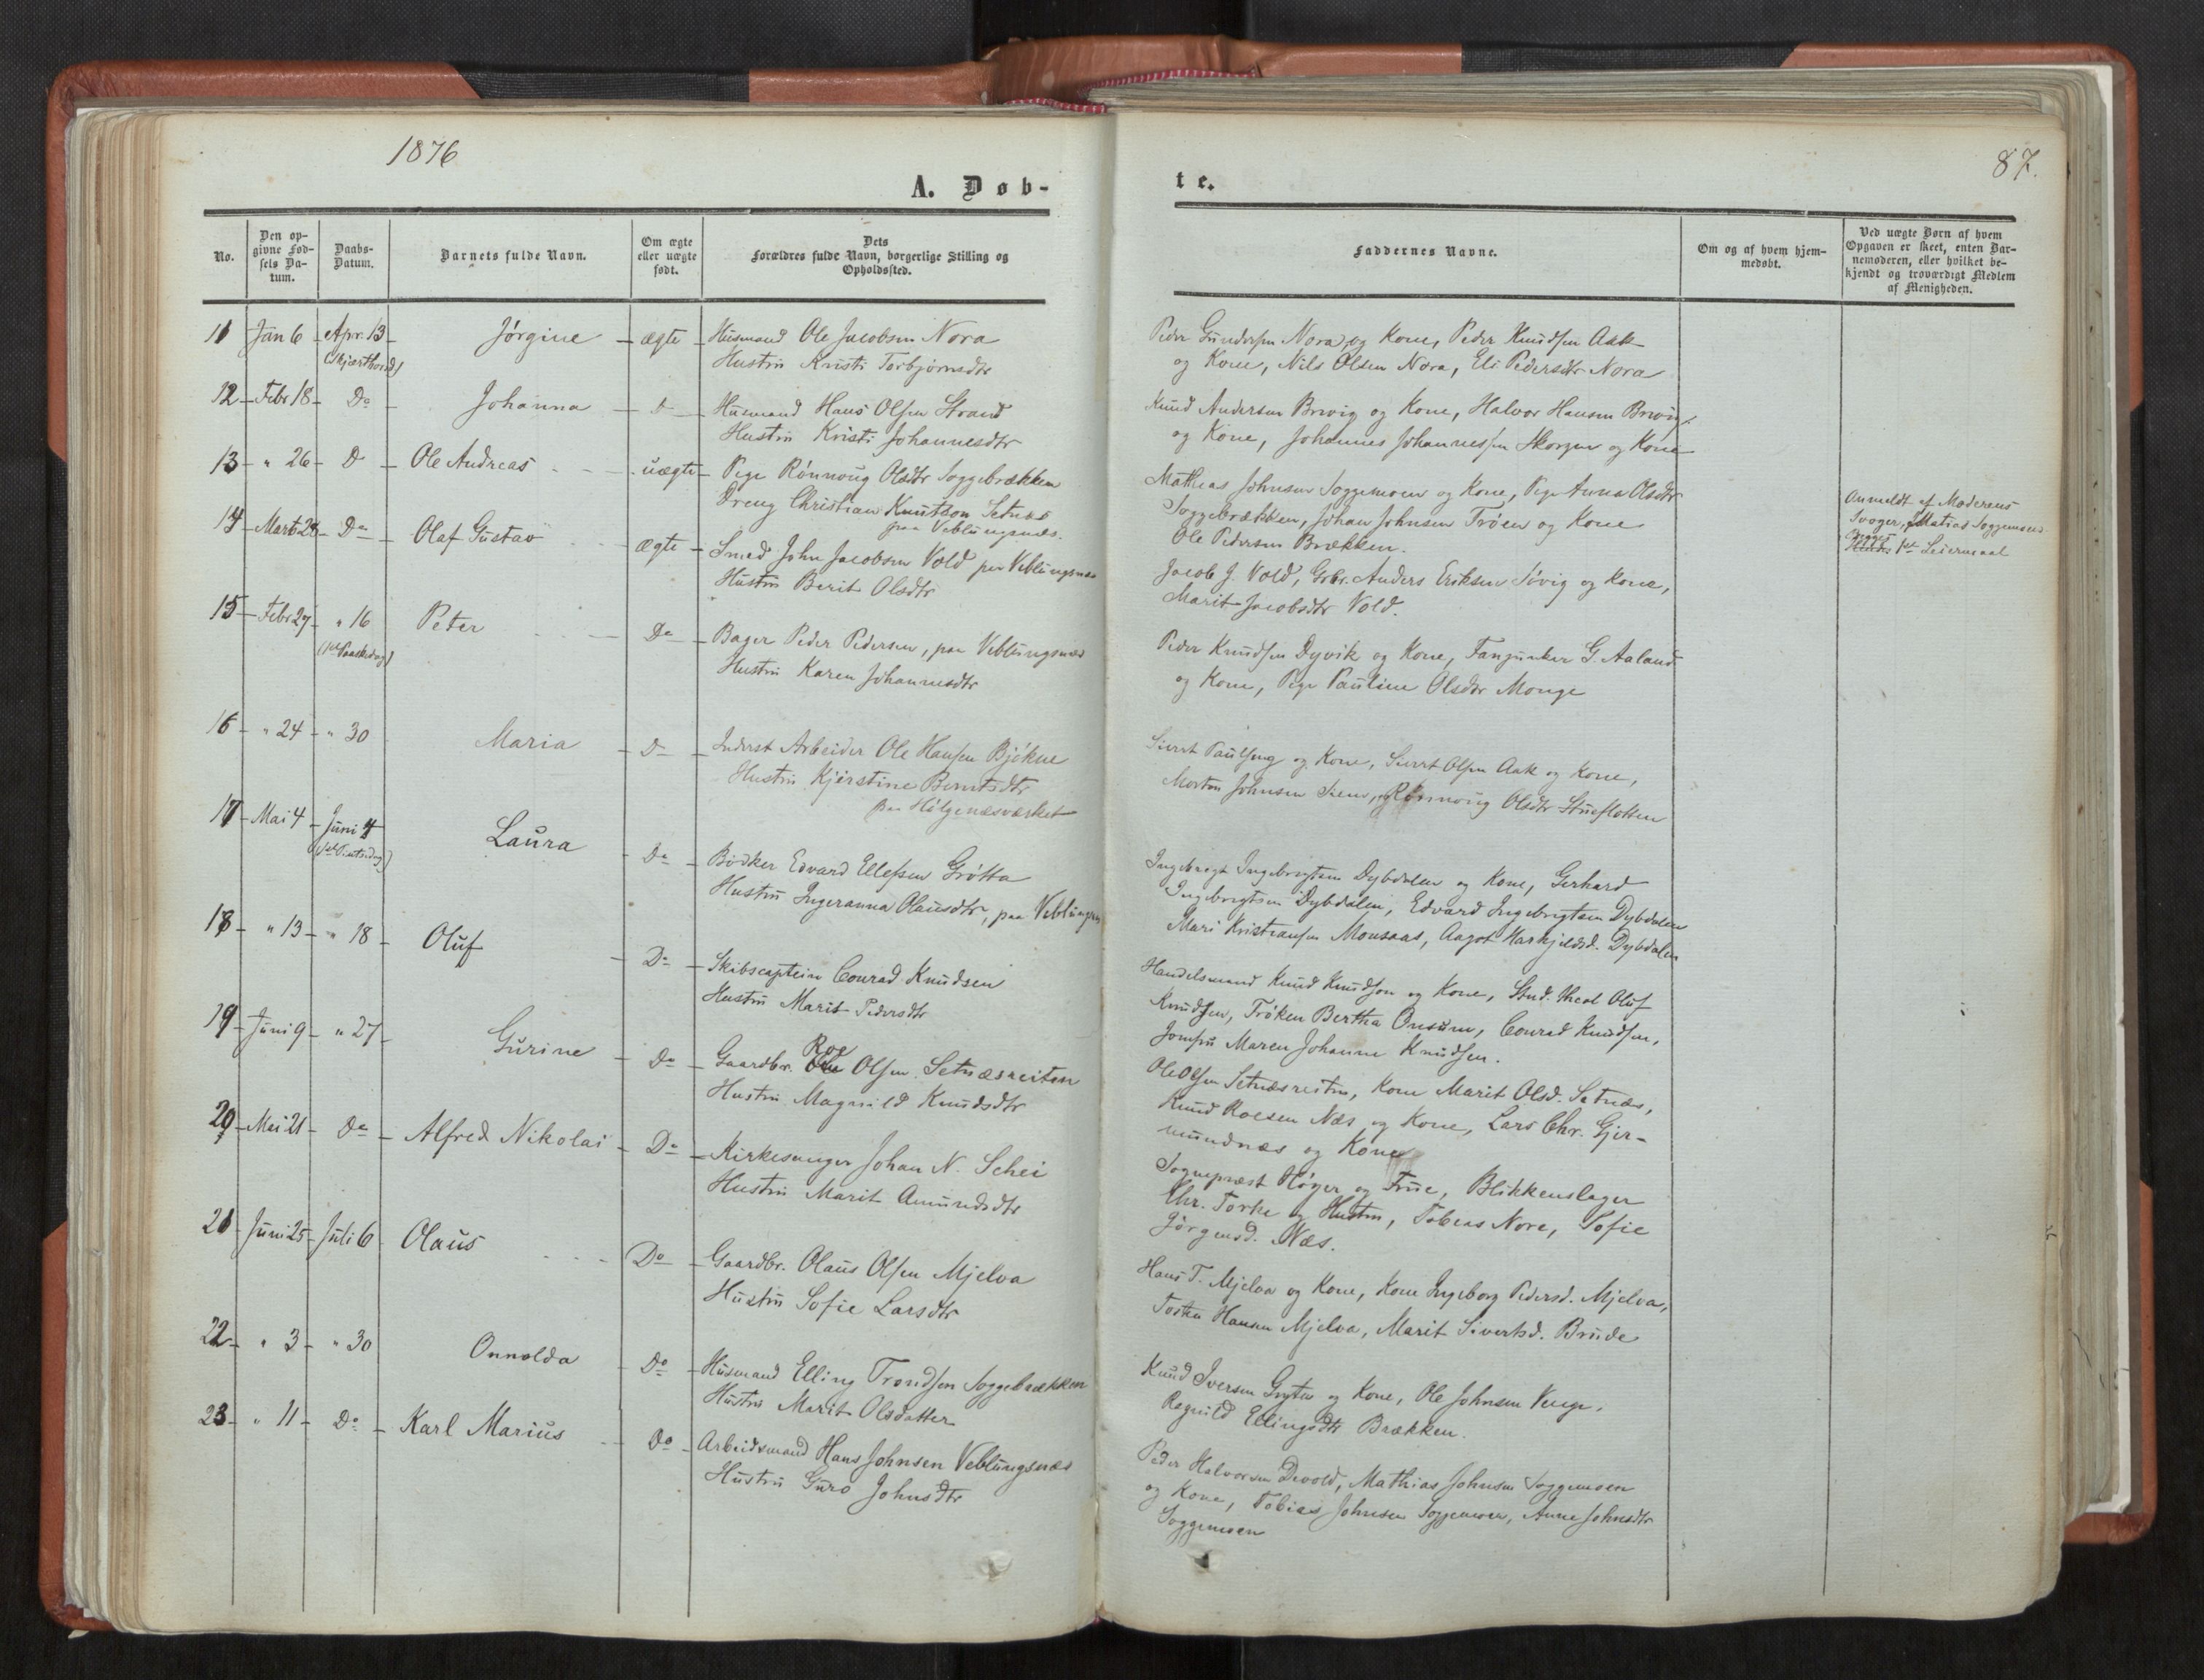 1876
A. Døb-
No.
Den op-
givne Fød-
sels Da-
tum.
Daabs-
Datum.
Barnets fulde Navn.
Om ægte
eller uægte
født.
Dets
Forældres fulde Navn, borgerlige Stilling og
Opholdssted.
11 Jan 6 Apr. 13 Jørgine ægte Husmand Ole Jacobsen Nora
(Skjærthorsd) Hustru Kristi Torbjørnsdtr
12 Febr 18 Do Johanna D Husmand Hans Olsen Strand
Hustru Kristi Johannesdtr
13 " 26 D Ole Andreas uægte Pige Rønnoug Olsdtr Soggebrækken
Dreng Christian Knutson Setnæs
paa Veblungsnæs.
14 Marts 28 Do Olaf Gustav ægte Smed John Jacobsen Vold paa Veblungsnæs
Hustru Berit Olsdtr
15 Febr 27 " 16 Peter Do Bager Peder Pedersen, paa Veblungsnæs
(1ste Paaskedag) Hustru Karen Johannesdtr
16 " 24 " 30 Maria D Inderst Arbeider Ole Hansen Bjökne
Hustru Kjerstine Berntsdtr
paa Holgenæsværket
17 Mai 4 Juni 4 Laura Do Bødker Edvard Ellefsen Grøtta
(1ste Pintsedag) Hustru Ingeranna Olausdtr, paa Veblungsn
18 " 13 " 18 Oluf Do Skibscaptein Conrad Knudsen
Hustru Marit Pedersdtr
19 Juni 9 " 27 Gurine Do Gaardbr. Roe Olsen Setnæsreiten
Hustru Magnild Knudsdtr
20 Mai 21 Do Alfred Nikolai Do Kirkesanger Johan N. Schei
Hustru Marit Amundsdtr
21 Juni 25 Juli 6 Olaus Do Gaardbr. Olaus Olsen Mjelva
Hustru Sofie Larsdtr
22 " 3 " 30 Onnolda Do Husmand Elling Trondsen Soggebrækken
Hustru Marit Olsdatter
23 " 11 Do Karl Marius Do Arbeidsmand Hans Johnsen Veblungsnæs
Hustru Guro Johnsdtr
87.
te.
Faddernes Navne.
Om og af hvem hjem-
medøbt.
Ved uægte Børn af hvem
Opgaven er skeet, enten Bar-
nemoderen, eller hvilket be-
kjendt og troværdigt Medlem
af Menigheden.
Peder Gundersen Nora og Kone, Peder Knudsen Aak
og Kone, Nils Olsen Nora, Eli Pedersdtr Nora
Knud Andersen Brevig og Kone, Halvor Hansen Brevig
og Kone, Johannes Johannessen Skorgen og Kone
Mathias Johnsen Soggemoen og Kone, Pige Anna Olsdtr
Soggebrækken, Johan Johnsen Trøen og Kone
Ole Pedersen Brækken.
Anmeldt af Moderens
Svoger, Matias Soggemoen
Begges 1ste Leiermaal
Jacob J. Vold, Grbr. Anders Eriksen Søvig og Kone,
Marit Jacobsdtr Vold.
Peder Knudsen Dyvik og Kone, Fanjunker G. Aaland
og Kone, Pige Pauline Olsdtr Monge
Sivert Paulseng og Kone, Sivert Olsen Aak og Kone,
Morten Johnsen, Rønnoug Olsdtr Stueflotten
Ingebrigt Ingebrigtsen Dybdalen og Kone, Gerhard
Ingebrigtsen Dybdalen, Edvard Ingebrigtsen Dybdalen
Mari Kristiansen Monsaas, Aagot Harkjeldsd. Dybdalen
Handelsmand Knud Knudson og Kone, Stud. theol Oluf
Knudsen, Frøken Bertha Onsum, Conrad Knudsen,
Jomfru Maren Johanne Knudsen.
Ole Olsen Setnæsreiten, Kone Marit Olsd. Setnæs,
Knud Roesen Næs og Kone, Lars Chr. Gjer-
mundnæs og Kone
Sognepræst Høyer og Frue, Blikkenslager
Chr. Torke og Hustru, Tobias Nora, Sofie
Jörgensd. Næs.
Hans T. Mjelva og Kone, Kone Ingeborg Pedersd. Mjelva,
Hansen Mjelva, Marit Sivertsd. Brude
Knud Iversen Gryten og Kone, Ole Johnsen Venge,
Ragnild Ellingsdtr Brækken.
Peder Halvorsen Devold, Mathias Johnsen Soggemoen
og Kone, Tobias Johnsen Soggemoen, Anne Johnsdtr
Soggemoen